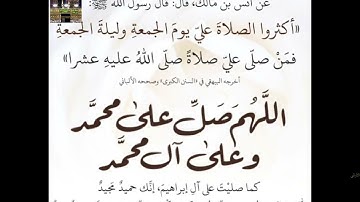 عن أنس بن مالك، قال: قال رسول الله ﷺ:
«أكثروا الصلاةَ عليّ يومَ الجمعةِ وليلةَ الجمعةِ
فمَنْ صلّى عليّ صلاةً صلّى اللهُ عليهِ عشرا»
أخرجه البيهقي في «السنن الكبرى» وصححه الألباني
اللَّهُمَ صَلِّ على محمَّد
وعلى آل محمَّد
كما صليْتَ على آلِ إبراهيمَ، إنَّك حميدٌ مَجيدٌ